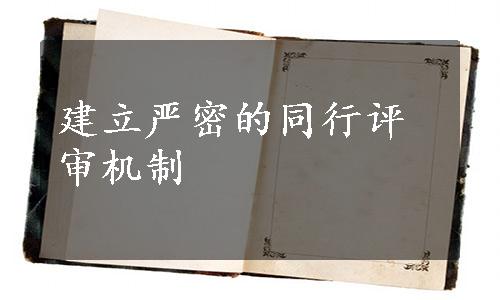 建立严密的同行评
审机制